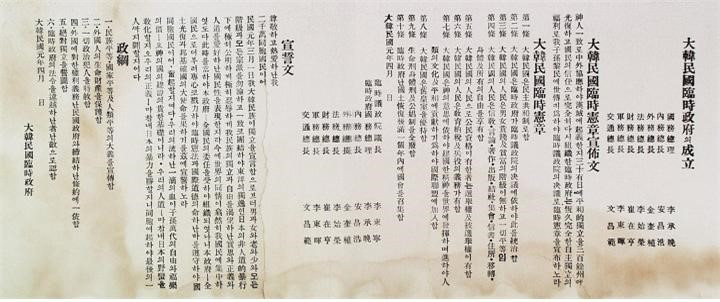 大韓民國臨時政府成立
國務總理　李承晩
內務總長　安昌浩
外務總長　金奎植
法務總長　李始榮
財務總長　崔在亨
軍務總長　李東暉
交通總長　文昌範
大韓民國臨時憲章宣佈文
神人一致로中外協應하야漢城에起義한지三十有日에平和的獨立을三百餘州에
光復하고國民의信任으로完全히다시組織한臨時政府는恒久完全한自主獨立의
福利로我子孫黎民에世傳키爲하야臨時議政院의決議로臨時憲章을宣布하노라
大韓民國臨時憲章
第一條　大韓民國은民主共和制로함
第二條　大韓民國은臨時政府가臨時議政院의決議에依하야此를統治함
第三條　大韓民國의人民은男女貴賤及貧富의階級이無하고一切平等임
第四條　大韓民國의人民은信敎・言論・著作・出版・結社・集會・信書・住所・移轉・
身體及所有의自由를享有함
第五條　大韓民國의人民으로公民資格이有한者는選擧權及被選擧權이有함
第六條　大韓民國의人民은敎育納稅及兵役의義務가有함
第七條　大韓民國은神의意思에依하야建國한精神을世界에發揮하며進하야人
類의文化及平和에貢獻하기爲하야國際聯盟에加入함
第八條　大韓民國은舊皇室을優待함
第九條　生命刑身體刑及公娼制를全廢함
第十條　臨時政府는國土恢復後滿一個年內에國會를召集함
大韓民國元年四月　日
臨時議政院議長　李東寧
臨時政府國務總理　李承晩
內務總長　安昌浩
外務總長　金奎植
法務總長　李始榮
財務總長　崔在亨
軍務總長　李東暉
交通總長　文昌範
宣誓文
尊敬하고熱愛하난我
二千萬同胞國民이어
民國元年三月一日我大韓民族이獨立을宣言함으로브터男과女와老와少와모든
階級과모든宗派를勿論하고一致코團結하야東洋의獨逸인日本의非人道的暴行
下에極히公明하게極히忍辱하게我民族의獨立과自由를渴望하난實思와正義와
人道를愛好하난國民性을表現한지라今에世界의同情이翕然히我國民에集中하
엿도다此時를當하야本政府ㅣ全國民의委任을受하야組織되엿나니本政府ㅣ全
國民으로더부러專心코戮力하야臨時憲法과國際道德의命하난바를遵守하야國
土光復과邦基確固의大使命을果하기를玆에宣誓하노라
同胞國民이어奮起할지어다우리의流하난一滴의血이子孫萬代의自由와福樂
의價ㅣ요神의國의建設의貴한基礎이니라・우리의人道ㅣ마참내日本의野蠻을
敎化할지오우리의正義ㅣ마참내日本의暴力을勝할지니同胞여起하야最後의一
人까지鬪할지어다
政綱
一・民族平等・國家平等及人類平等의大義를宣傳함
二・外國人의生命財産을保護함
三・一切政治犯人을特赦함
四・外國에對한權利義務난民國政府와締結하난條約에一依함
五・絶對獨立을誓圖함
六・臨時政府의法令을違越하난者난敵으로認함
大韓民國元年四月　日
大韓民國臨時政府